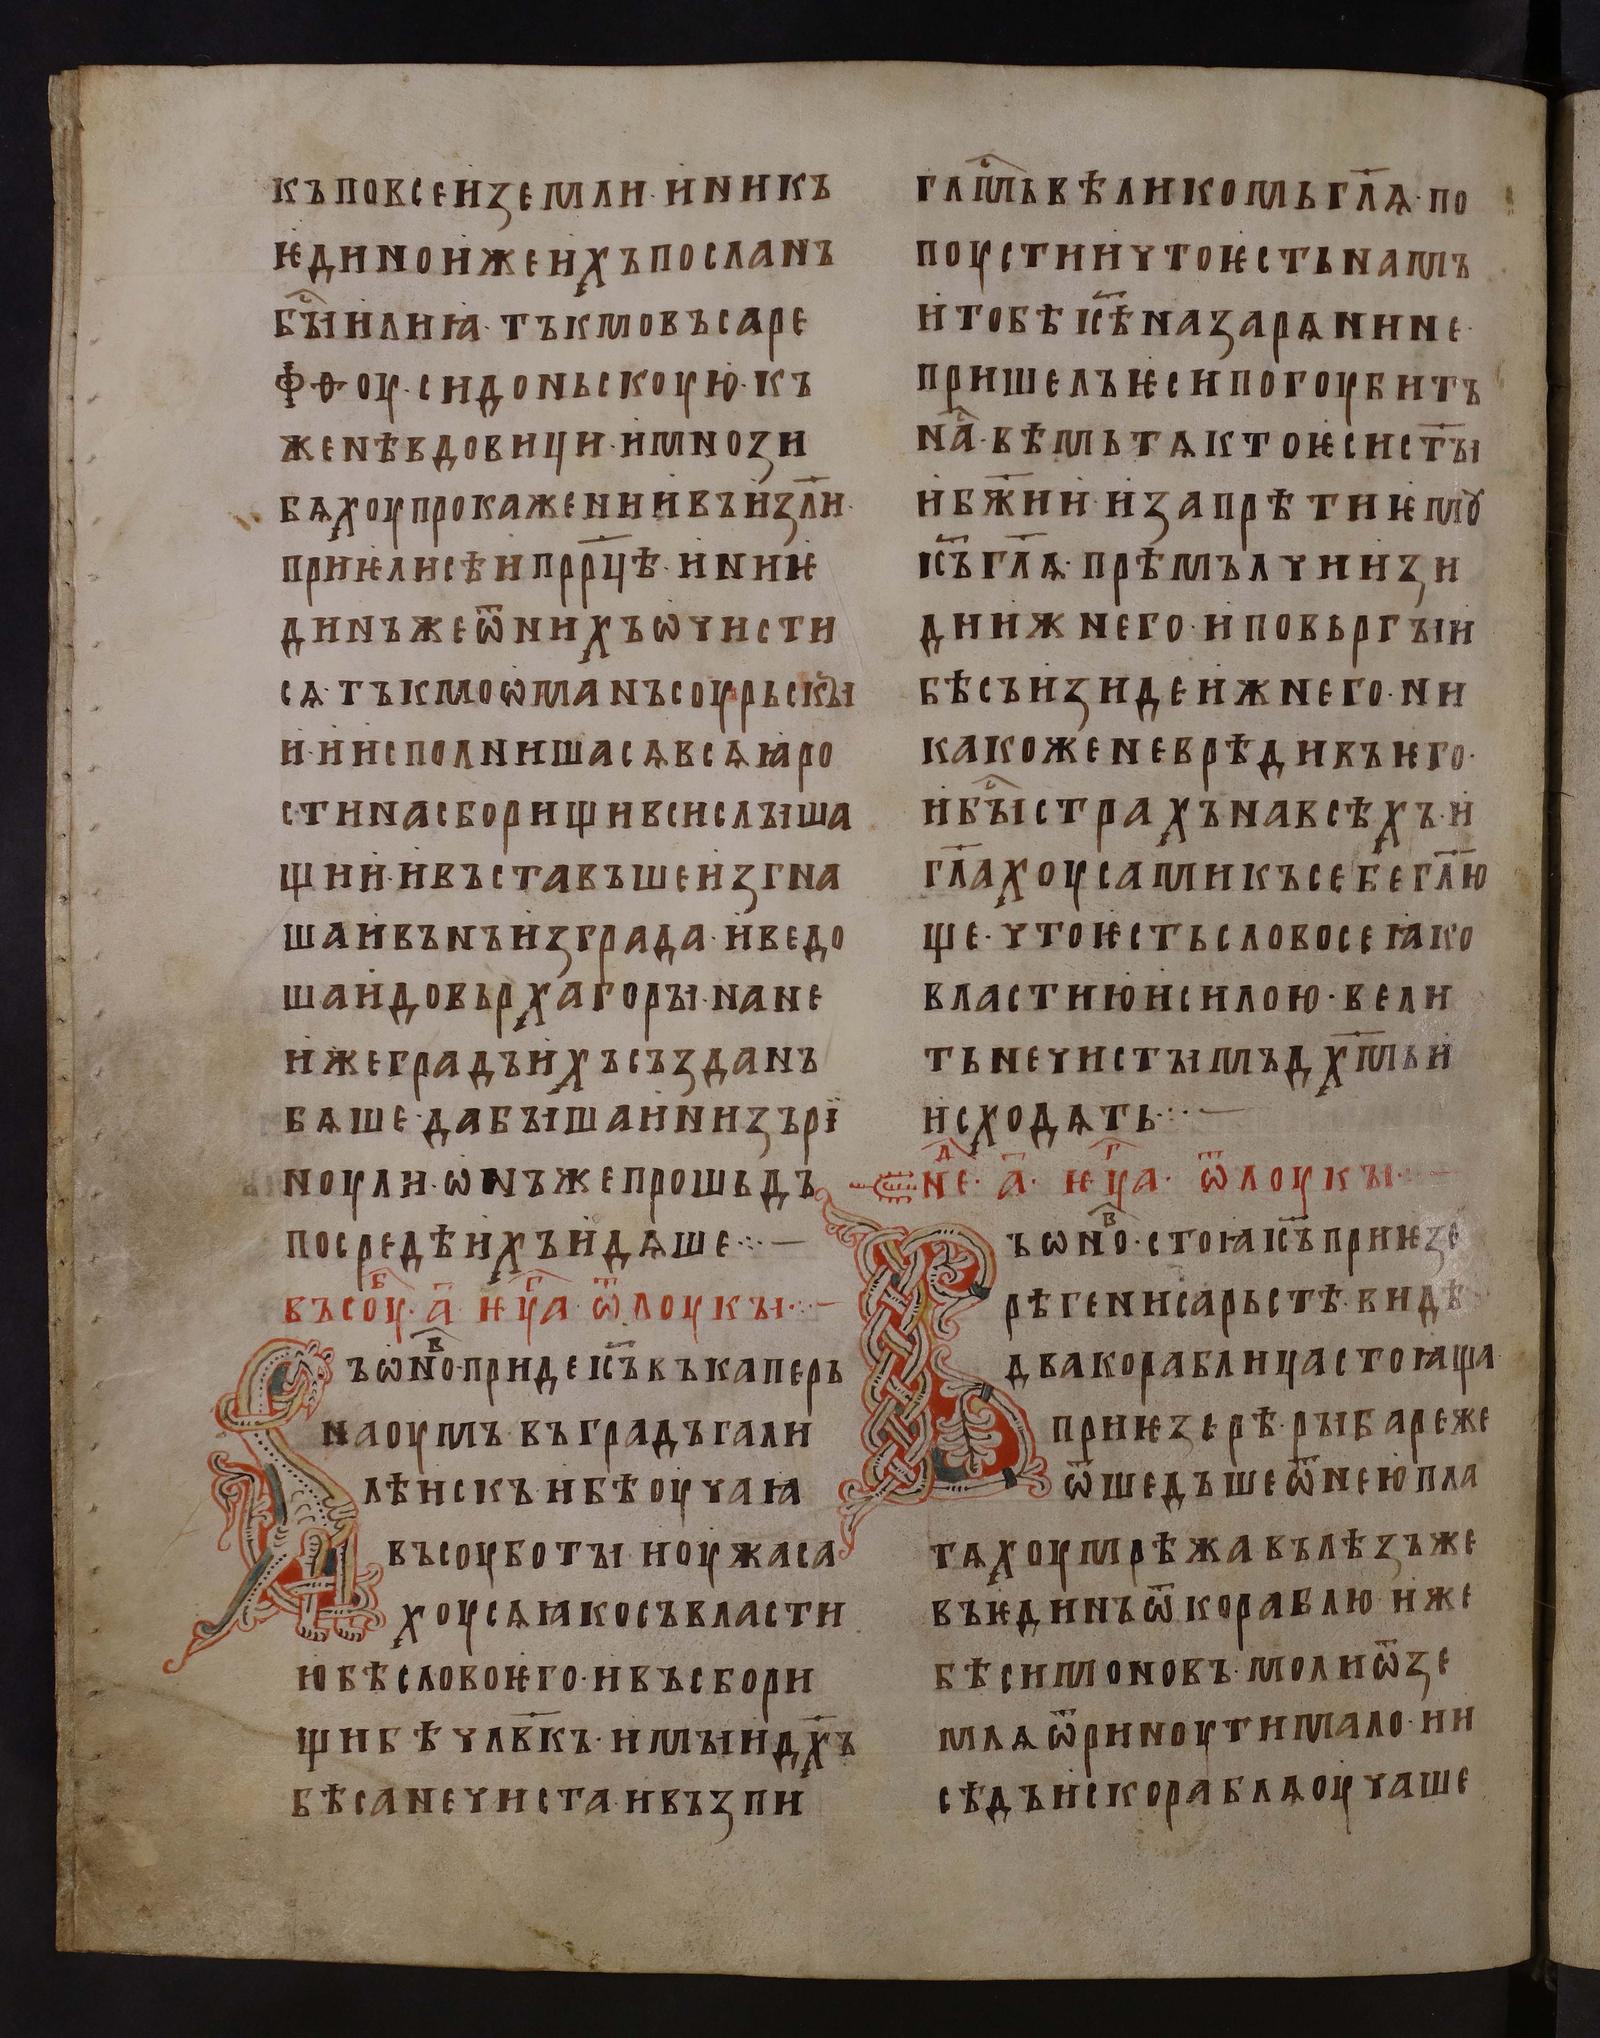 къповсеиземли·иникъ
ѥдинои҆жеи҆хъпосланъ
бы҇илиꙗ·тъкмовъсаре
фѳоу·сидоньскоую·къ
женѣвдовици·имнози
бѧхоупрокажениивъиꙁл҃и·
приѥлисѣипрр҃цѣ·иниѥ
динъжеѿнихъѡчисти
сѧ·тъкмоѡманъсоурьскы
и·иисполнишасѧвсѧꙗро
стинасборищивсислыша
щии·ивъставъшеиꙁгна
шаивънъиꙁграда·иведо
шаидовьрхагоры·нане
ижеградъихъсъꙁданъ
бѧше·дабышаиниꙁърї
ноули·ѡнъжепрошьдъ
посредѣихъидѧше·:·—
въсоуб·а҃·ѥуⷢ҇а·ѿлоукы·:·—
ъѡноⷡ·придеіс҃ъвъкаперь
наоумъ·въградъгали
лѣискъ·ибѣоучаꙗ
въсоуботы·иоужаса
хоусѧꙗкосъвласти
юбѣсловоѥго·ивъсбори
щибѣчл҃вкъ·имыидх҃ъ
бѣсанечиста·ивъꙁпи
глⷭ҇мьвѣликомьгл҃ѧ·по
поустиичтоѥстьнамъ
итобѣіс҃ѣнаꙁарѧнине·
пришелъѥсипогоубитъ
наⷭ҇·вѣмьтѧктоѥсист҃ы
ибж҃ии·иꙁапрѣтиѥмꙋ
іс҃ъгл҃ѧ·прѣмълчииꙁи
дниижнего·иповьргыи
бѣсъиꙁидеижнего·ни
какоженеврѣдивъѥго·
ибы҇страхънавсѣхъ·и
гл҃ахоусамикъсебегл҃ю
ще·чтоѥстьсловосеꙗко
властиюисилою·вели
тьнечистымъдх҃мъи
исходѧть·:·—
неⷣ·а҃·ѥуⷢ҇а·ѿлоукы·:·—
ъѡноⷡ·стоꙗіс҃ъприѥꙁе
рѣгенисарьстѣ·видѣ
двакораблицастоꙗща
приѥꙁерѣ·рыбареже
ѿшедъшеѿнеюпла
тѧхоумрѣжавълѣꙁъже
въѥдинъѿкораблю·иже
бѣсимоновъ·молиѿꙁе
млѧѿриноутимало·ии
сѣдъискораблѧоучаше